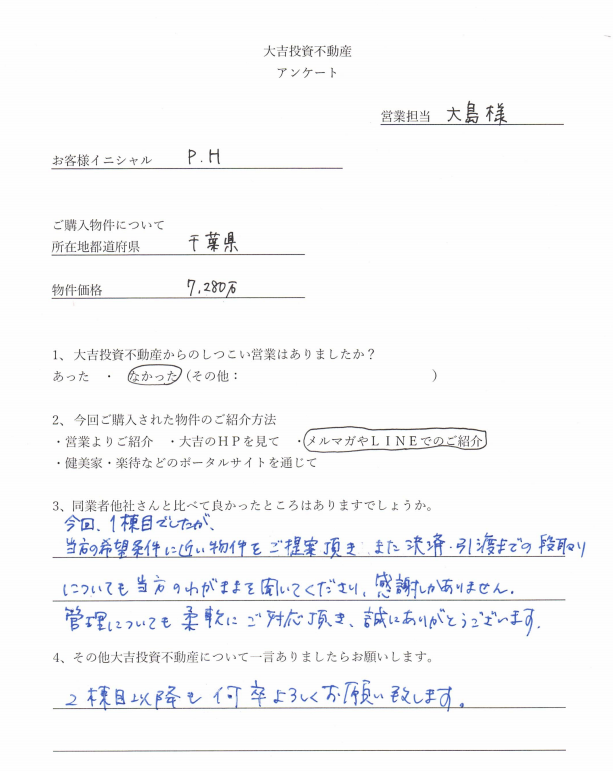 大吉投資不動産
アンケート
営業担当 大島様
お客様イニシャル P.H
ご購入物件について
所在地都道府県 千葉県
物件価格 7,280万
1、大吉投資不動産からのしつこい営業はありましたか？
あった ・ なかった (その他： )
2、今回ご購入された物件のご紹介方法
・営業よりご紹介 ・大吉のHPを見て ・メルマガやLINEでのご紹介
・健美家・楽待などのポータルサイトを通じて
3、同業者他社さんと比べて良かったところはありますでしょうか。
今回、1棟目でしたが、
当方の希望条件に近い物件をご提案頂き、また決済・引渡までの段取り
についても当方のわがままを聞いてくださり、感謝しかありません。
管理についても柔軟にご対応頂き、誠にありがとうございます。
4、その他大吉投資不動産について一言ありましたらお願いします。
2棟目以降も何卒よろしくお願い致します。